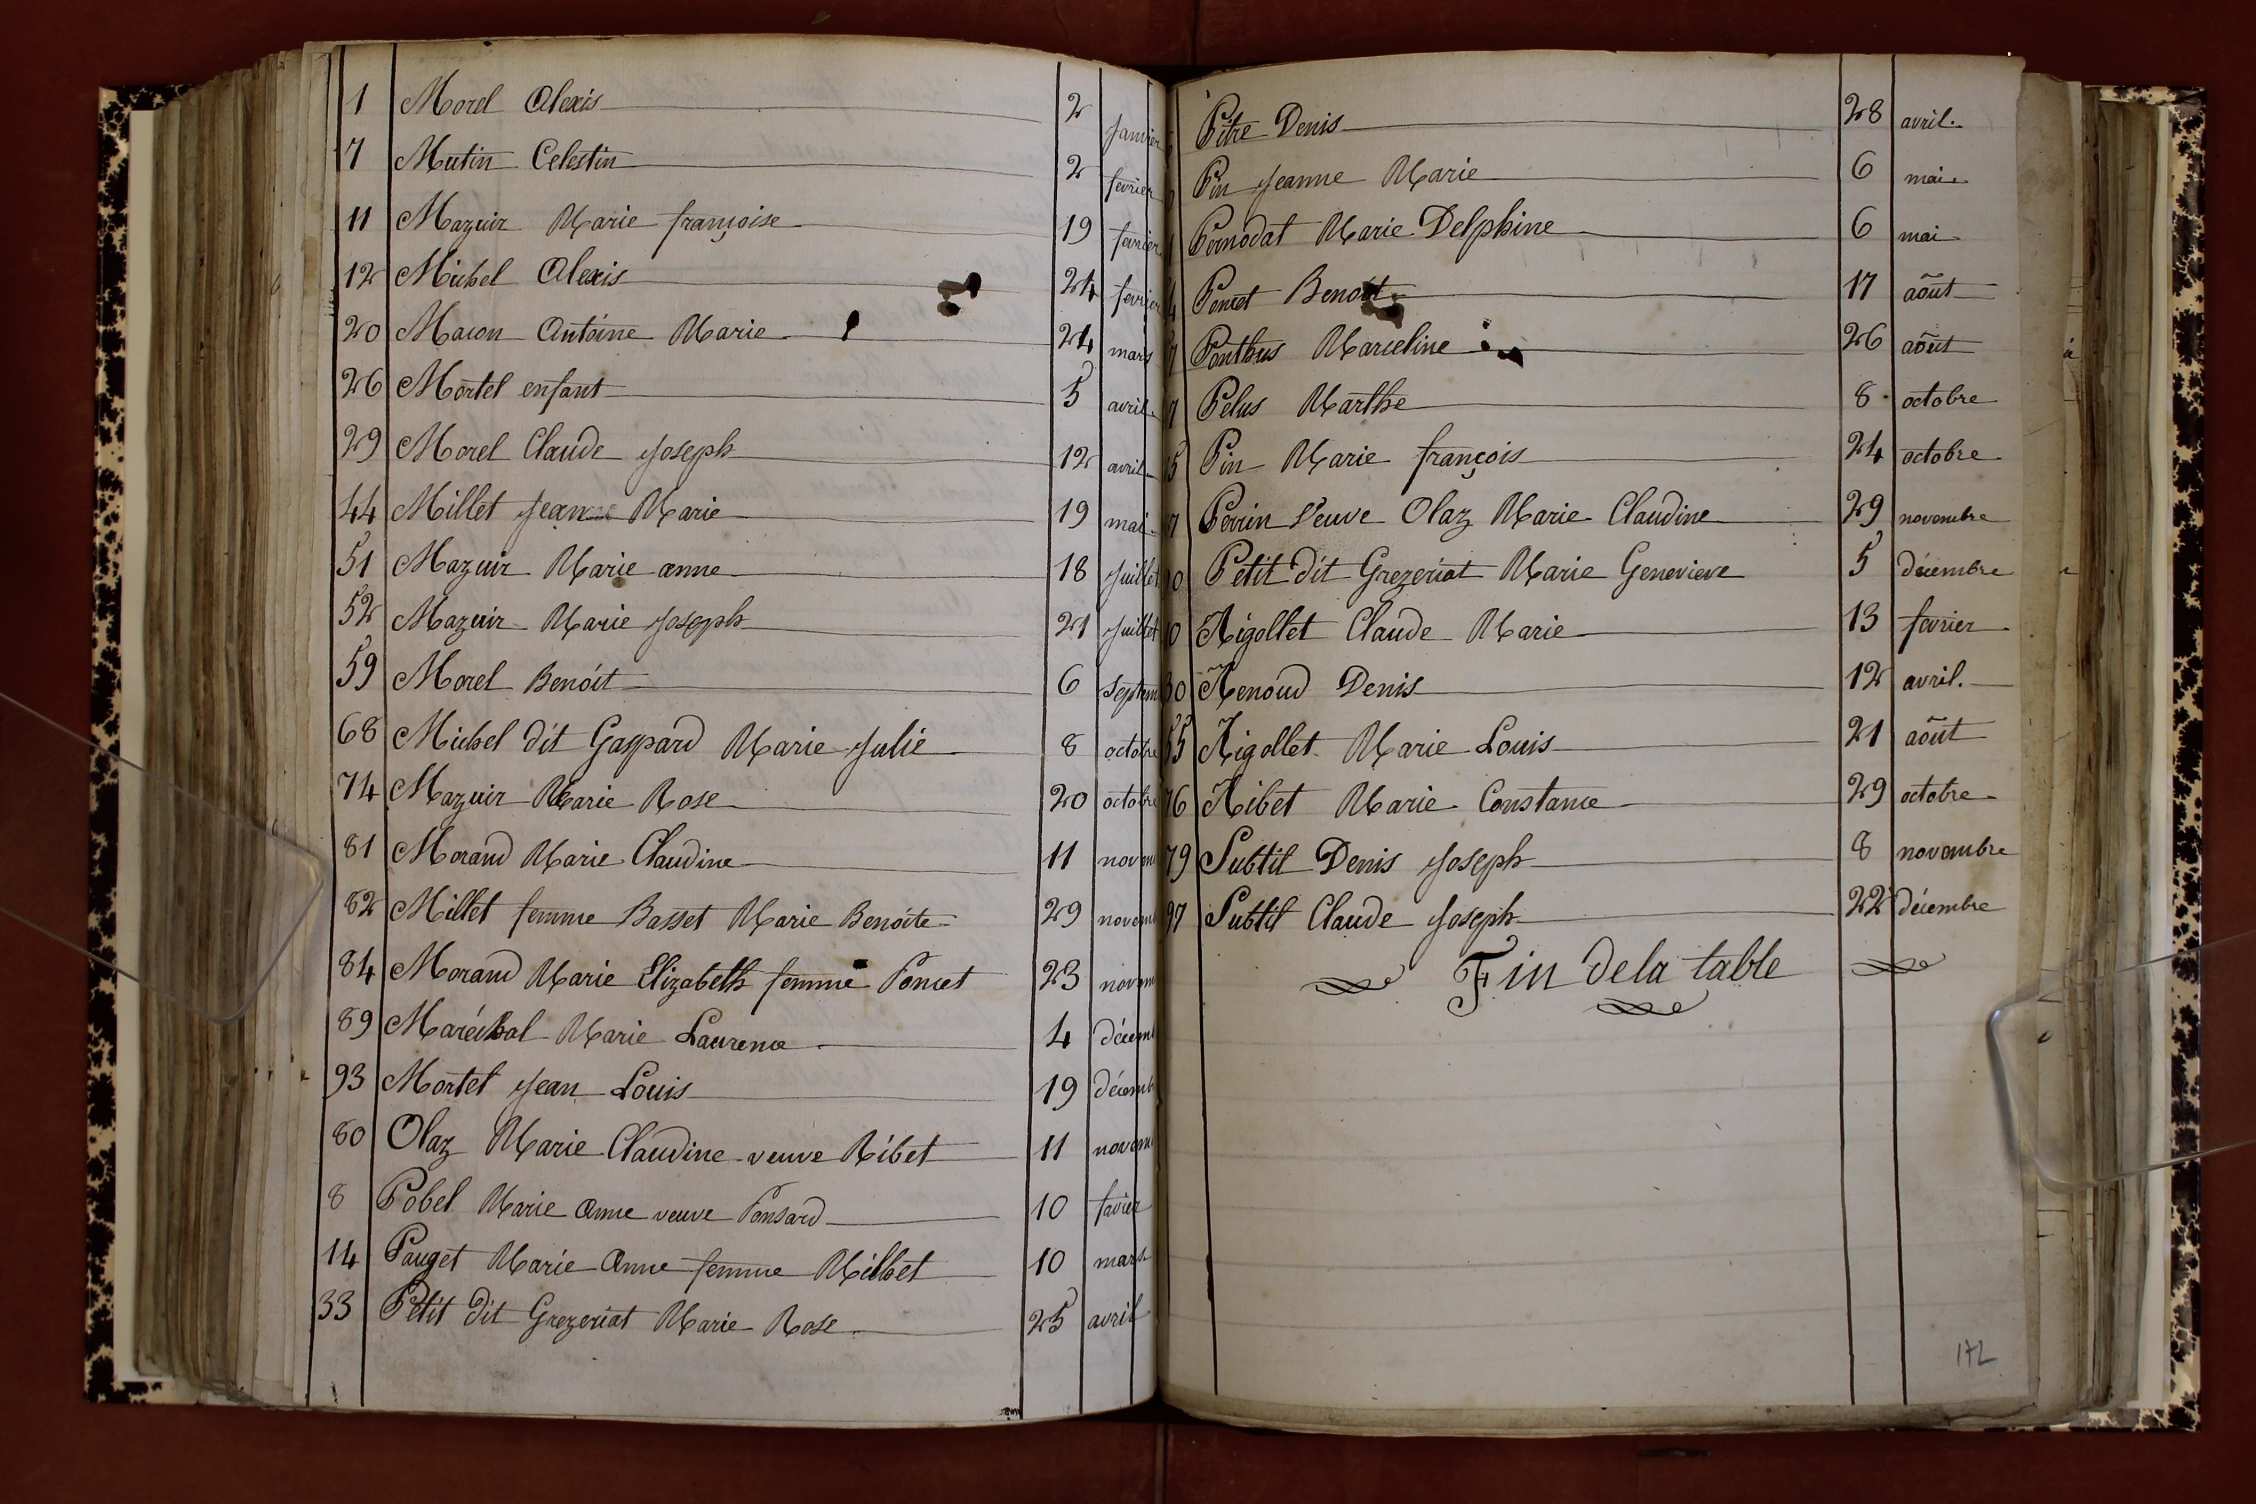 1 Morel Alexis 2 Janvier
7 Mutin Celestin 2 fevrier
11 Mazuir Marie françoise 19 fevrier
12 Michel Alexis 24 fevrier
20 Macon Antoine Marie 24 mars
26 Mortel enfant 5 avril
29 Morel Claude Joseph 12 avril
44 Millet Jeanne Marie 19 mai
51 Mazuir Marie anne 18 Juillet
52 Mazuir Marie Joseph 21 Juillet
59 Morel Benoit 6 Septem
68 Michel dit Gaspard Marie Julie 8 octobre
74 Mazuir Marie Rose 20 octobre
81 Morand Marie Claudine 11 novem
82 Millet femme Basset Marie Benoite 29 novem
84 Morand Marie Elizabeth femme Poncet 23 novem
89 Maréchal Marie Laurence 4 décem
93 Mortel Jean Louis 19 décemb
80 Olaz Marie Claudine veuve Ribet 11 novem
8 Pobel Marie Anne veuve Ponsard 10
14 Pauget Marie Anne femme Millet 10 mars
33 Petit dit Grezeriat Marie Rose 25 avril
Pitre Denis 28 avril.
Pin Jeanne Marie 6 mai
Pernodat Marie Delphine 6 mai
4 Poncet Benoit 17 août
7 Ponthus Marceline 26 août
7 Pelus Marthe 8 octobre
5 Pin Marie françois 24 octobre
7 Perrin Veuve Olaz Marie Claudine 29 novembre
0 Petit dit Grezeriat Marie Genevieve 5 décembre
0 Rigollet Claude Marie 13 fevrier
30 Renoud Denis 12 avril.
55 Rigollet Marie Louis 21 août
76 Ribet Marie Constance 29 octobre
79 Subtil Denis Joseph 8 novembre
97 Subtil Claude Joseph 22 décembre
Fin de la table
172